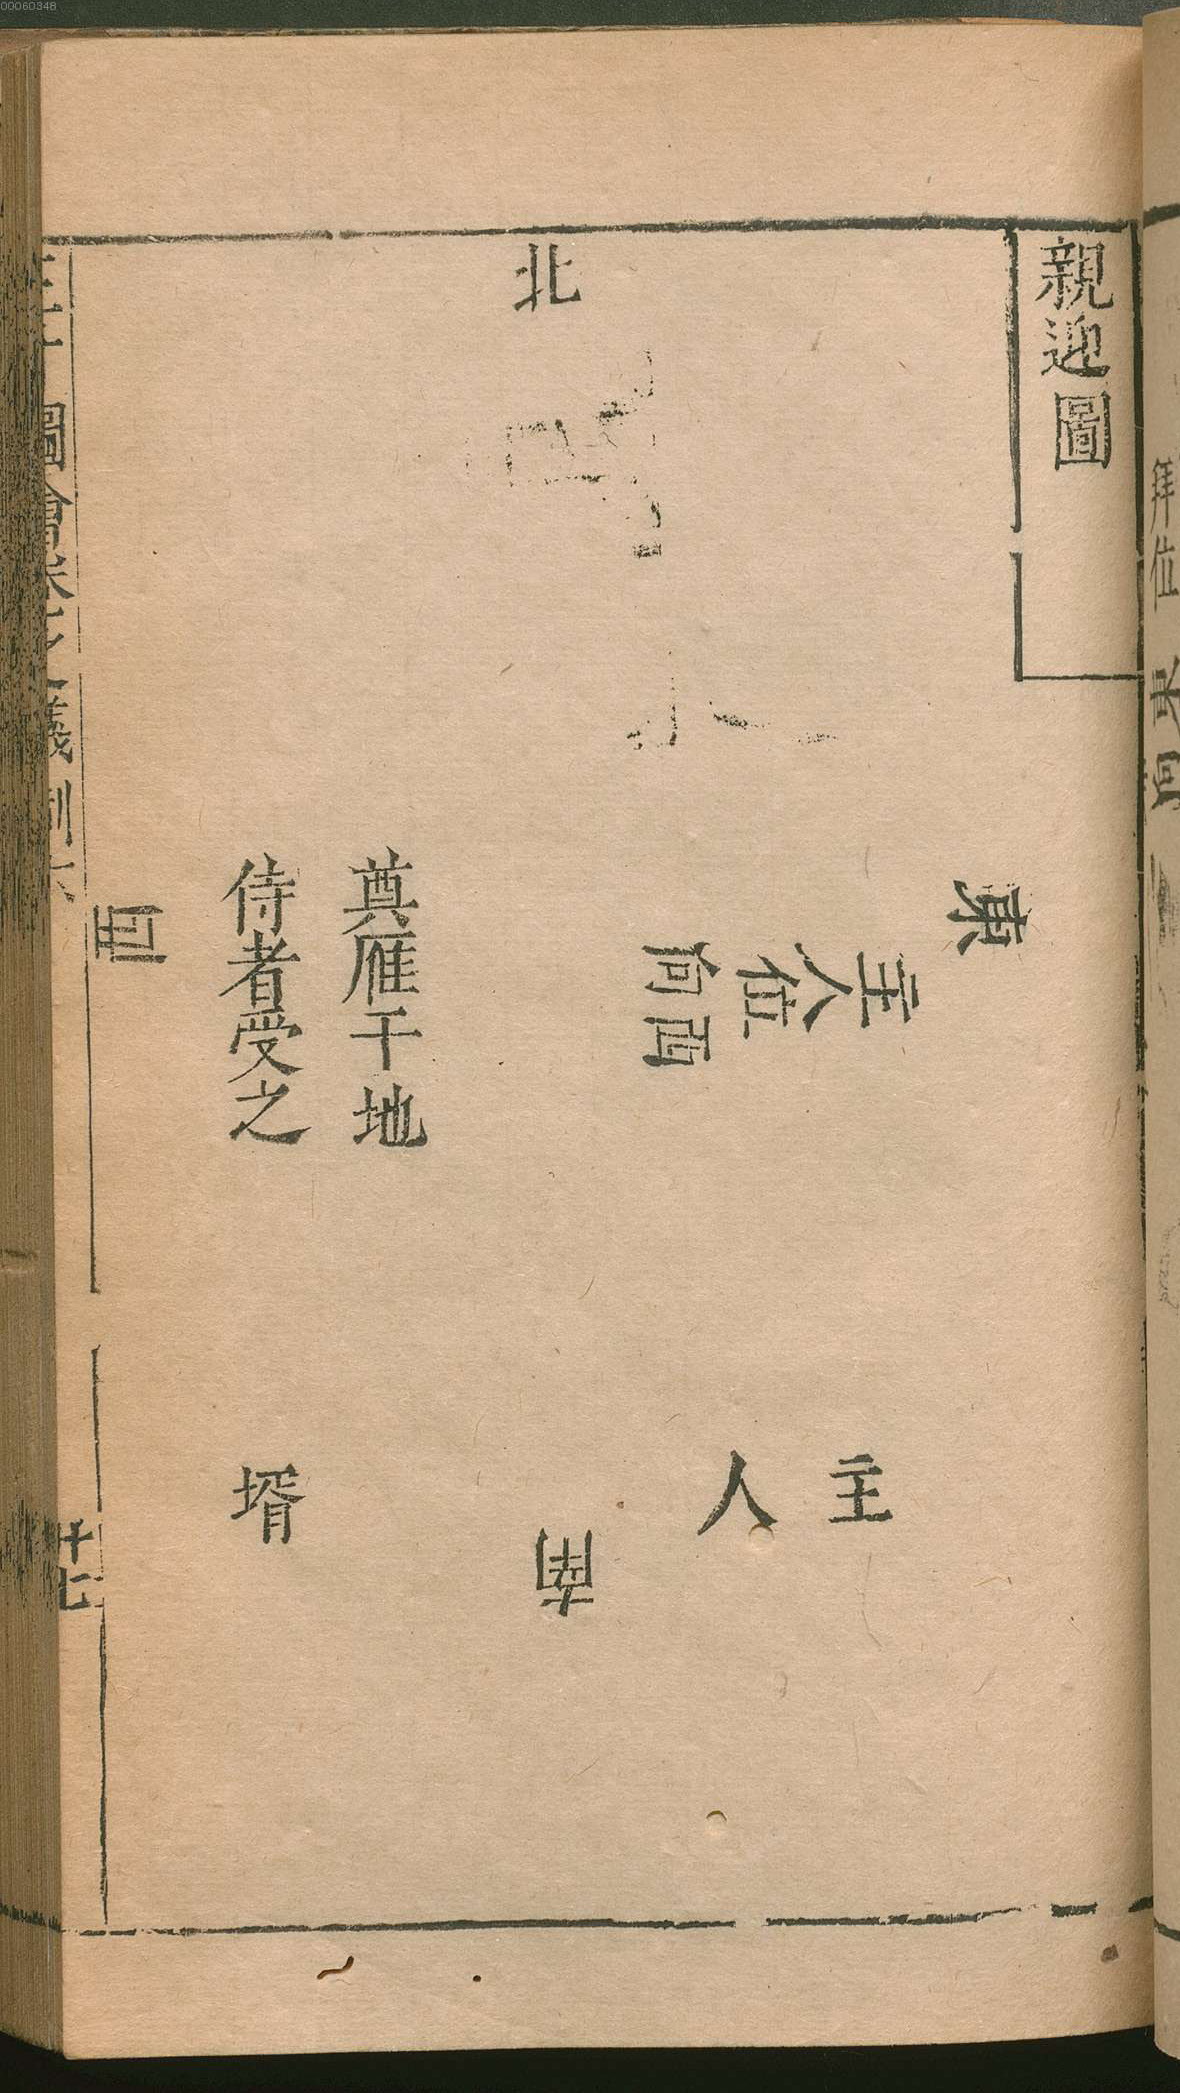 00060348
親迎圖
北
東
主人位
向西
奠雁于地
侍者受之
西
主
人
南
壻
圖會
儀制六
十七
拜位